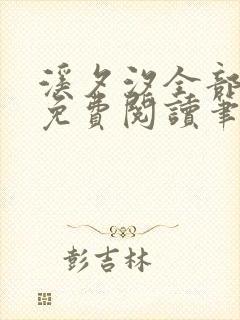 溪夕汐全部
免費閱讀筆
彭吉林